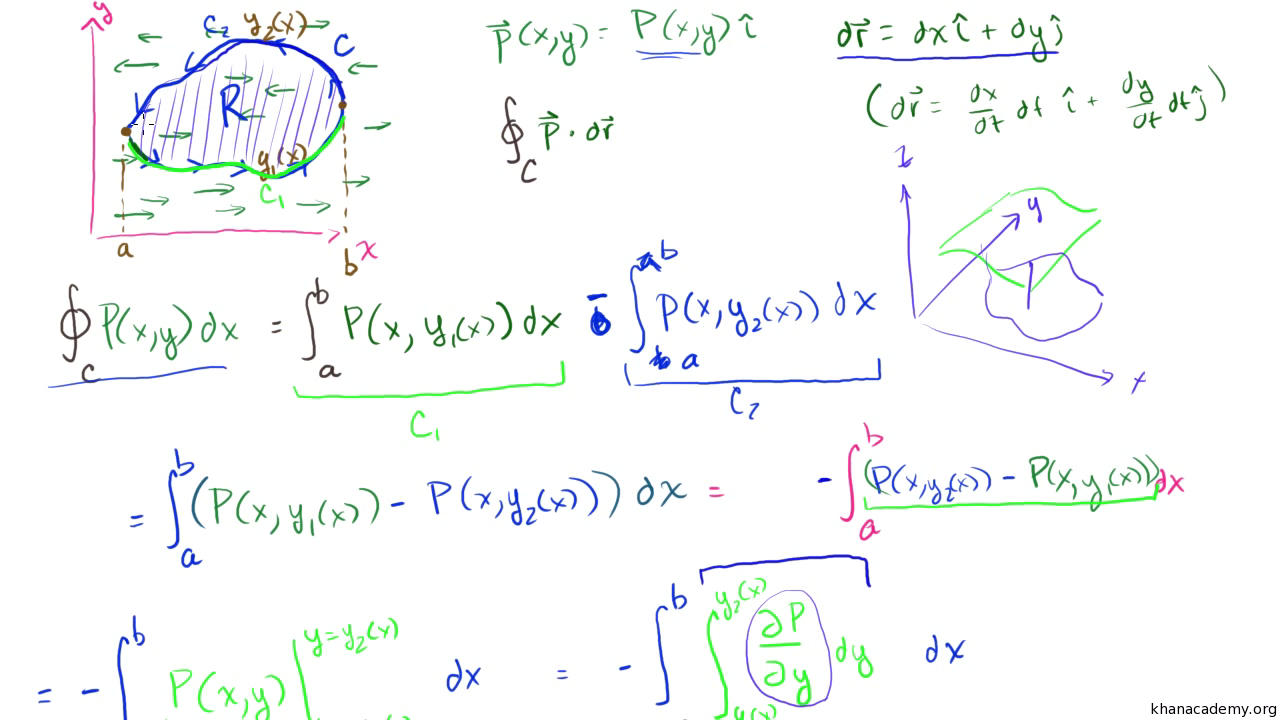 y
C₂ y₂(x)
C
R
y₁(x)
C₁
a
b
x
P⃗(x,y) = P(x,y) î
dr⃗ = dx î + dy ĵ
(dr⃗ = dx/dt dt î + dy/dt dt ĵ)
∮_C P⃗ · dr⃗
z
y
x
∮_C P(x,y) dx = ∫_a^b P(x, y₁(x)) dx - ∫_a^b P(x, y₂(x)) dx
C₁ C₂
= ∫_a^b (P(x, y₁(x)) - P(x, y₂(x))) dx = - ∫_a^b (P(x, y₂(x)) - P(x, y₁(x))) dx
= - ∫^b P(x,y) |^{y=y₂(x)} dx = - ∫^b ∫_{y₁(x)}^{y₂(x)} ∂P/∂y dy dx
khanacademy.org